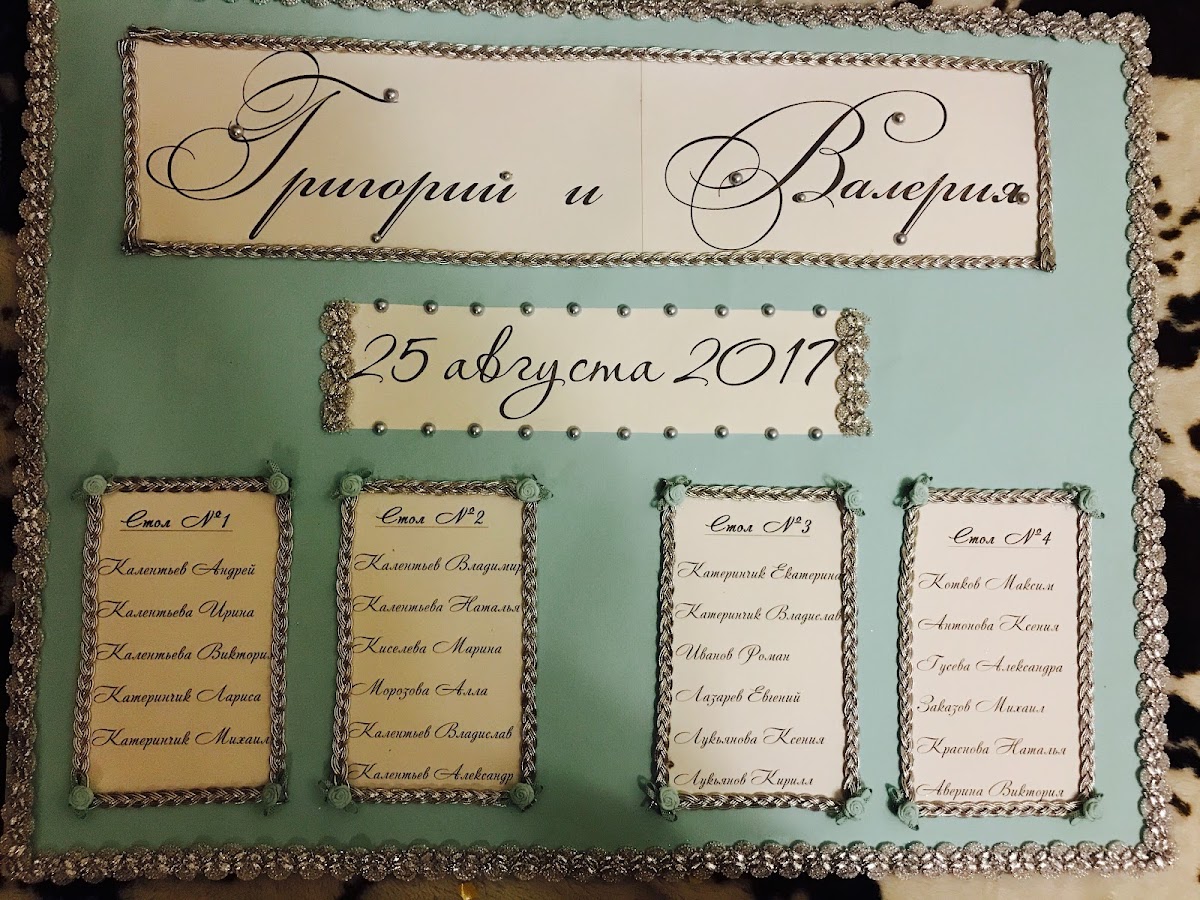 Григорий и Валерия
25 августа 2017
Стол №1
Калентьев Андрей
Калентьева Ирина
Калентьева Виктория
Катеринчик Лариса
Катеринчик Михаил
Стол №2
Калентьев Владимир
Калентьева Наталья
Киселева Марина
Морозова Алла
Калентьев Владислав
Калентьев Александр
Стол №3
Катеринчик Екатерина
Катеринчик Владислав
Иванов Роман
Лазарев Евгений
Лукьянова Ксения
Лукьянов Кирилл
Стол №4
Котков Максим
Антонова Ксения
Гусева Александра
Заказов Михаил
Краснова Наталья
Аверина Виктория